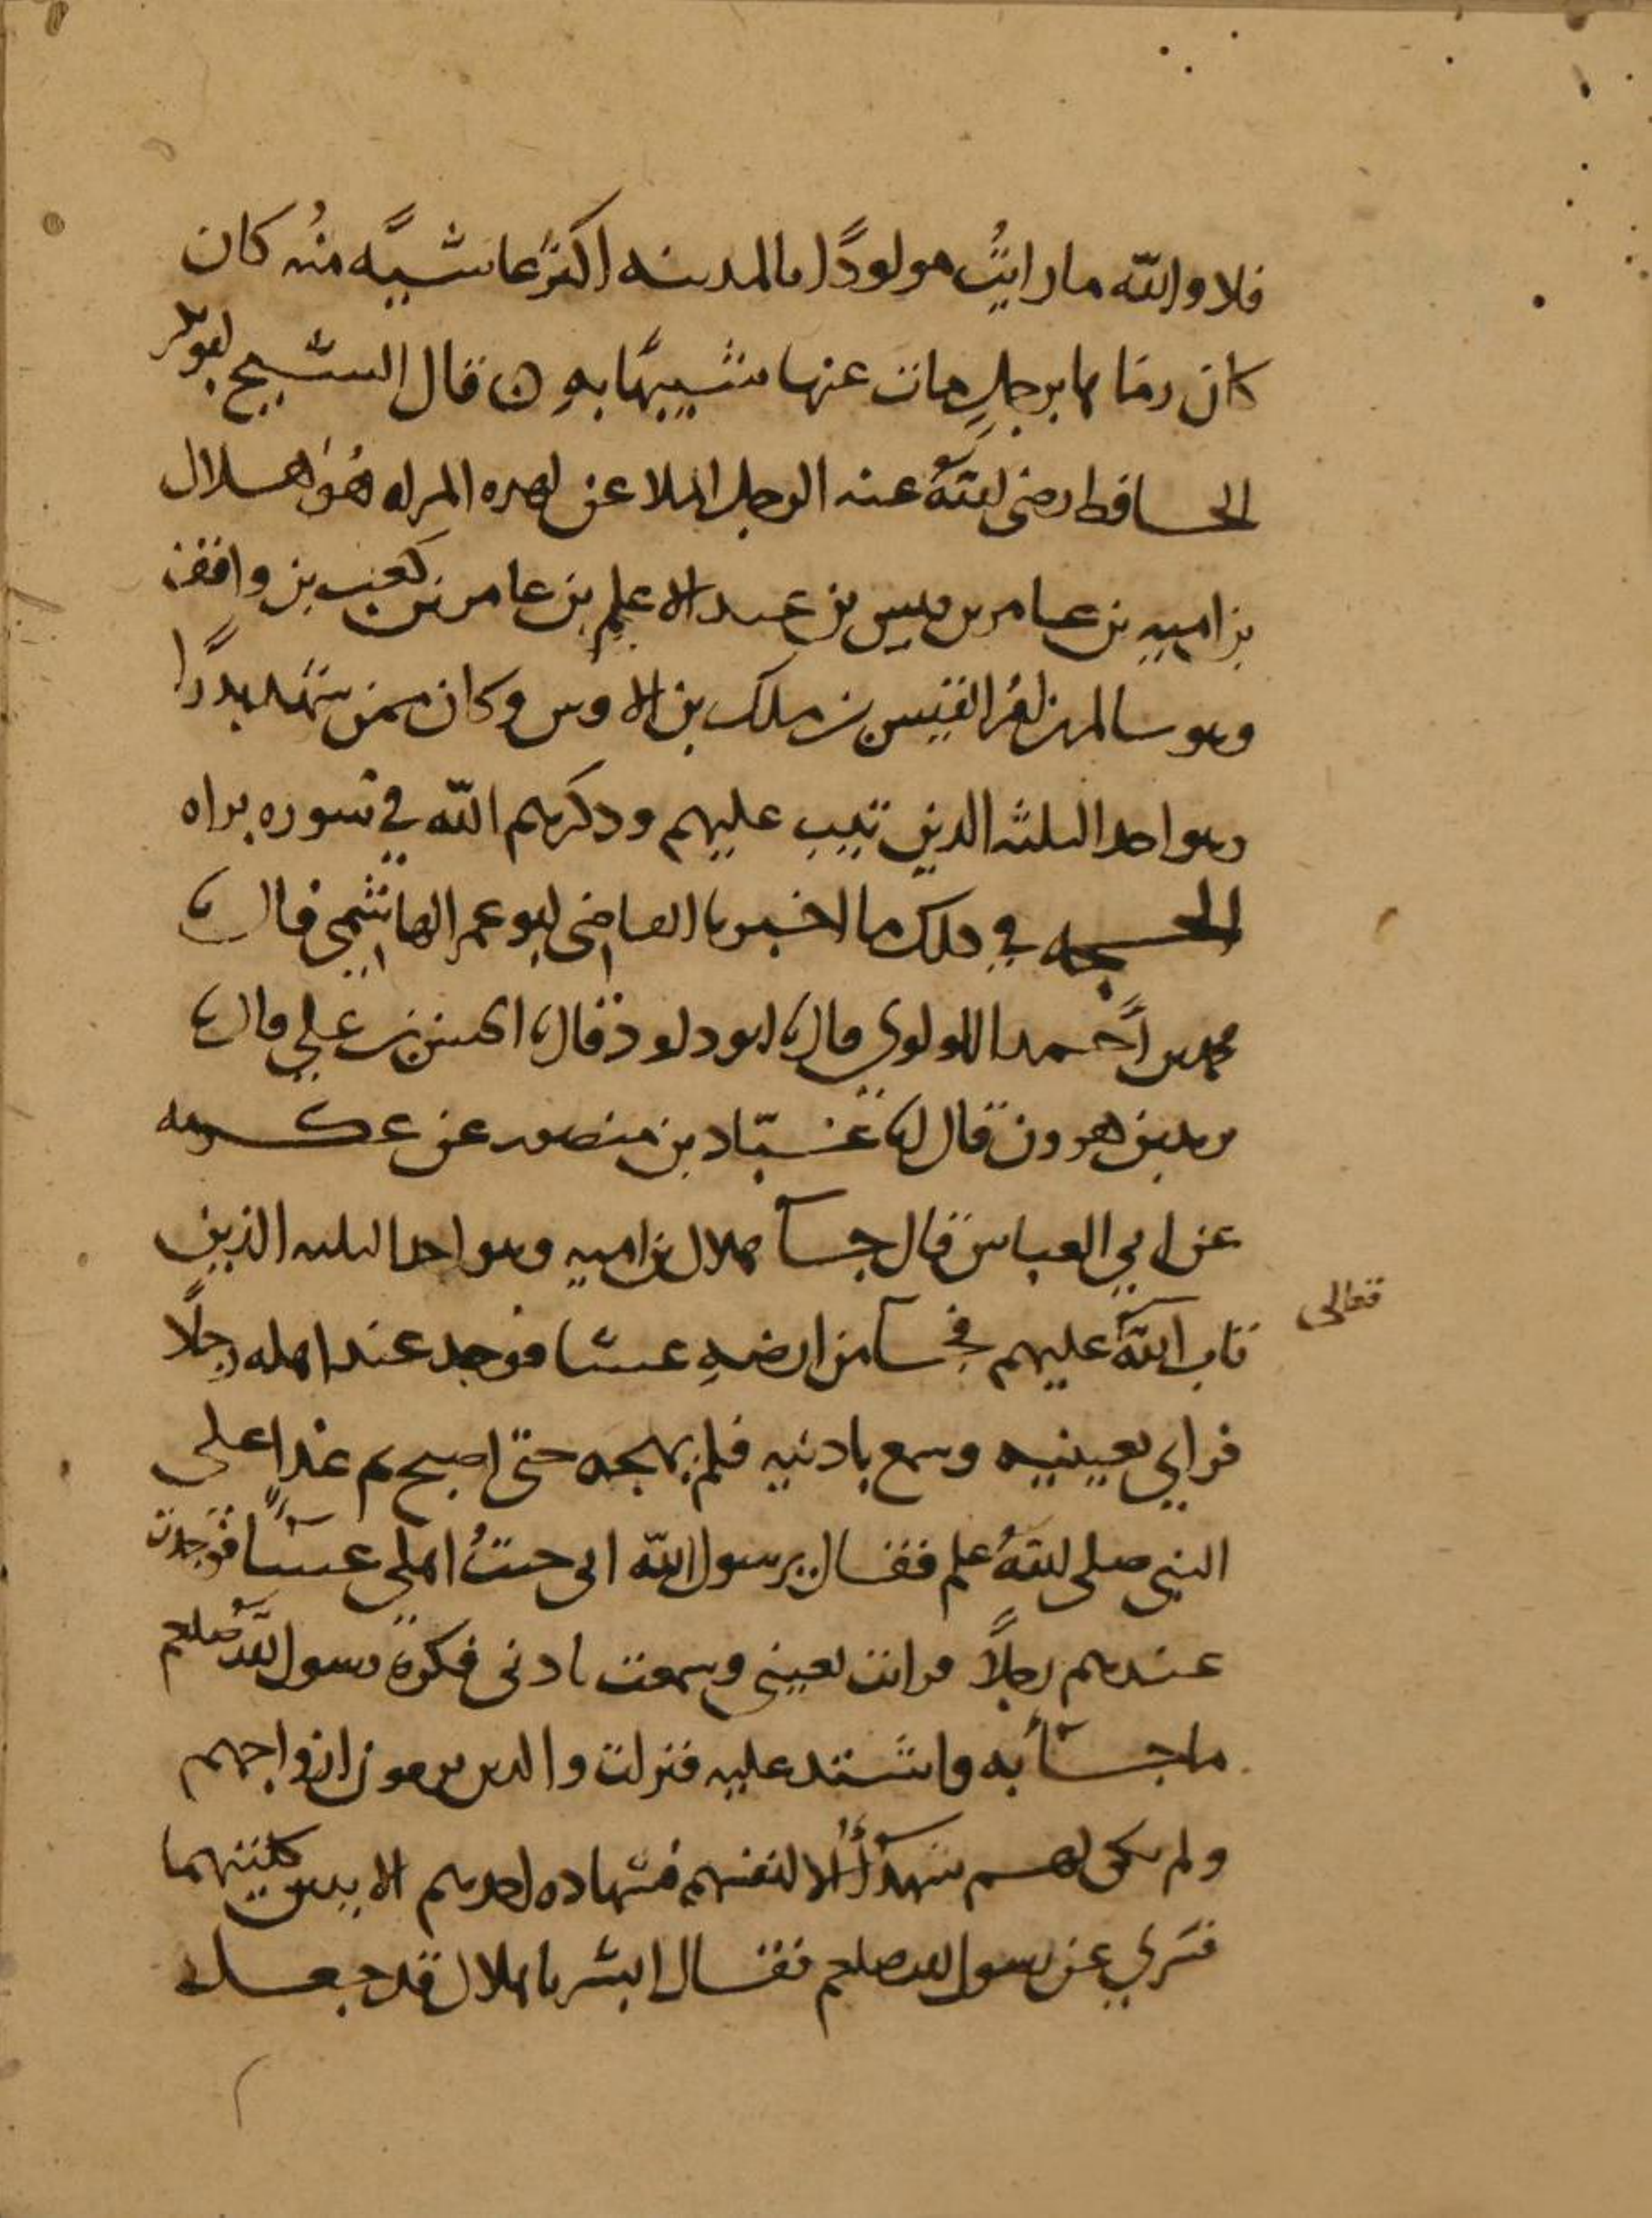 فلا والله ما رايتُ مولودًا بالمدينه اكثر غاشيَّه منُه كان
كان رماها برجلٍ مات عنها شبيهًا بهِ ه قال الشيخ ابو بكر
الحافظ رضى اللهُ عنه الرجل الملاعن لهذه المراه هُو هلال
بن اميه بن عامر بن قيس بن عبد الاعلم بن عامر بن كعب بن واقف
وهو سالم بن امرُ القيس بن ملك بن الاوس وكان ممن شهد بدرًا
وهو احد الثلثه الذين تيب عليهم وذكرهم الله في سوره براه
الحجه في ذلك ما اخبرنا القاضى ابو عمر الهاشمي قال نا
محمد بن أحمد اللولوي قال نا ابو داود قال نا الحسن بن علي قال نا
يزيد بن هرون قال انا عبّاد بن منصور عن عكرمه
عن ابي العباس قال جآ هلال بن اميه وهو احد الثلثه الذين
تاب اللهُ عليهم فجآ من ارضهِ عشا فوجد عند اهله رجلًا
تعالى
فراي بعينيه وسمع باذنيه فلم يهجه حتى اصبح ثم غدا على
النبي صلى اللهُ علم فقال يرسول الله انى جيتُ اهلي عشآًا فوجدت
عندهم رجلًا فرايت بعيني وسمعت باذنى فكره رسول اللهُ صلعم
ما جآ به واشتد عليه فنزلت والذين يرمون ازواجهم
ولم يكن لهم شهدآُ الا انفسهم فشهاده احدهم الايتين كلتيهما
فسُري عن رسول الله صلعم فقال ابشر يا هلال قد جعل